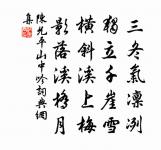 三冬氣凜冽
獨立千崖雪
橫斜溪上梅
影落溪橋月
陳允平山中吟詞典網
集